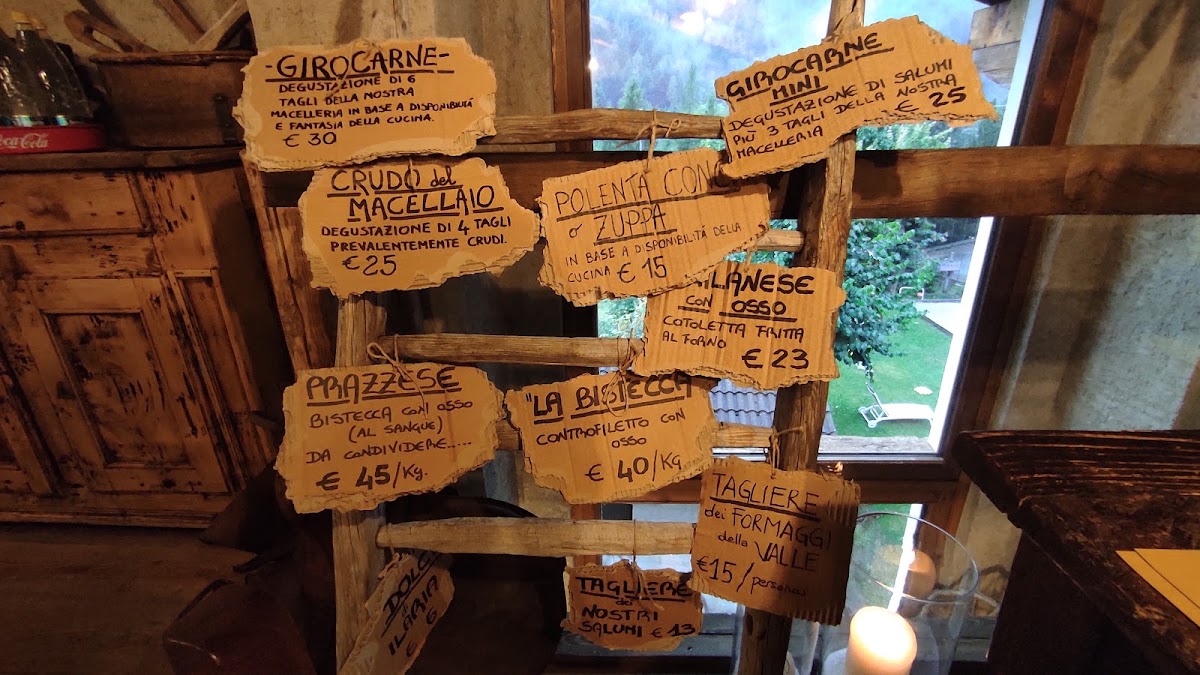 -GIROCARNE-
DEGUSTAZIONE DI 6
TAGLI DELLA NOSTRA
MACELLERIA IN BASE A DISPONIBILITÁ
E FANTASIA DELLA CUCINA.
€ 30
GIROCARNE
MINI
DEGUSTAZIONE DI SALUMI
PIÙ 3 TAGLI DELLA NOSTRA
MACELLERIA € 25
CRUDO del
MACELLAIO
DEGUSTAZIONE DI 4 TAGLI
PREVALENTEMENTE CRUDI.
€25
POLENTA CONCIA
o ZUPPA
IN BASE A DISPONIBILITÁ DELLA
CUCINA € 15
MILANESE
CON OSSO
COTOLETTA FRITTA
AL FORNO € 23
PRAZZESE
BISTECCA CON OSSO
(AL SANGUE)
DA CONDIVIDERE.....
€ 45/Kg.
"LA BISTECCA
CONTROFILETTO CON
OSSO
€ 40/Kg
TAGLIERE
dei FORMAGGI
della VALLE
€15/persona
DOLCI
di
ILARIA
€ 6
TAGLIERE
dei
NOSTRI
SALUMI € 13
Coca-Cola